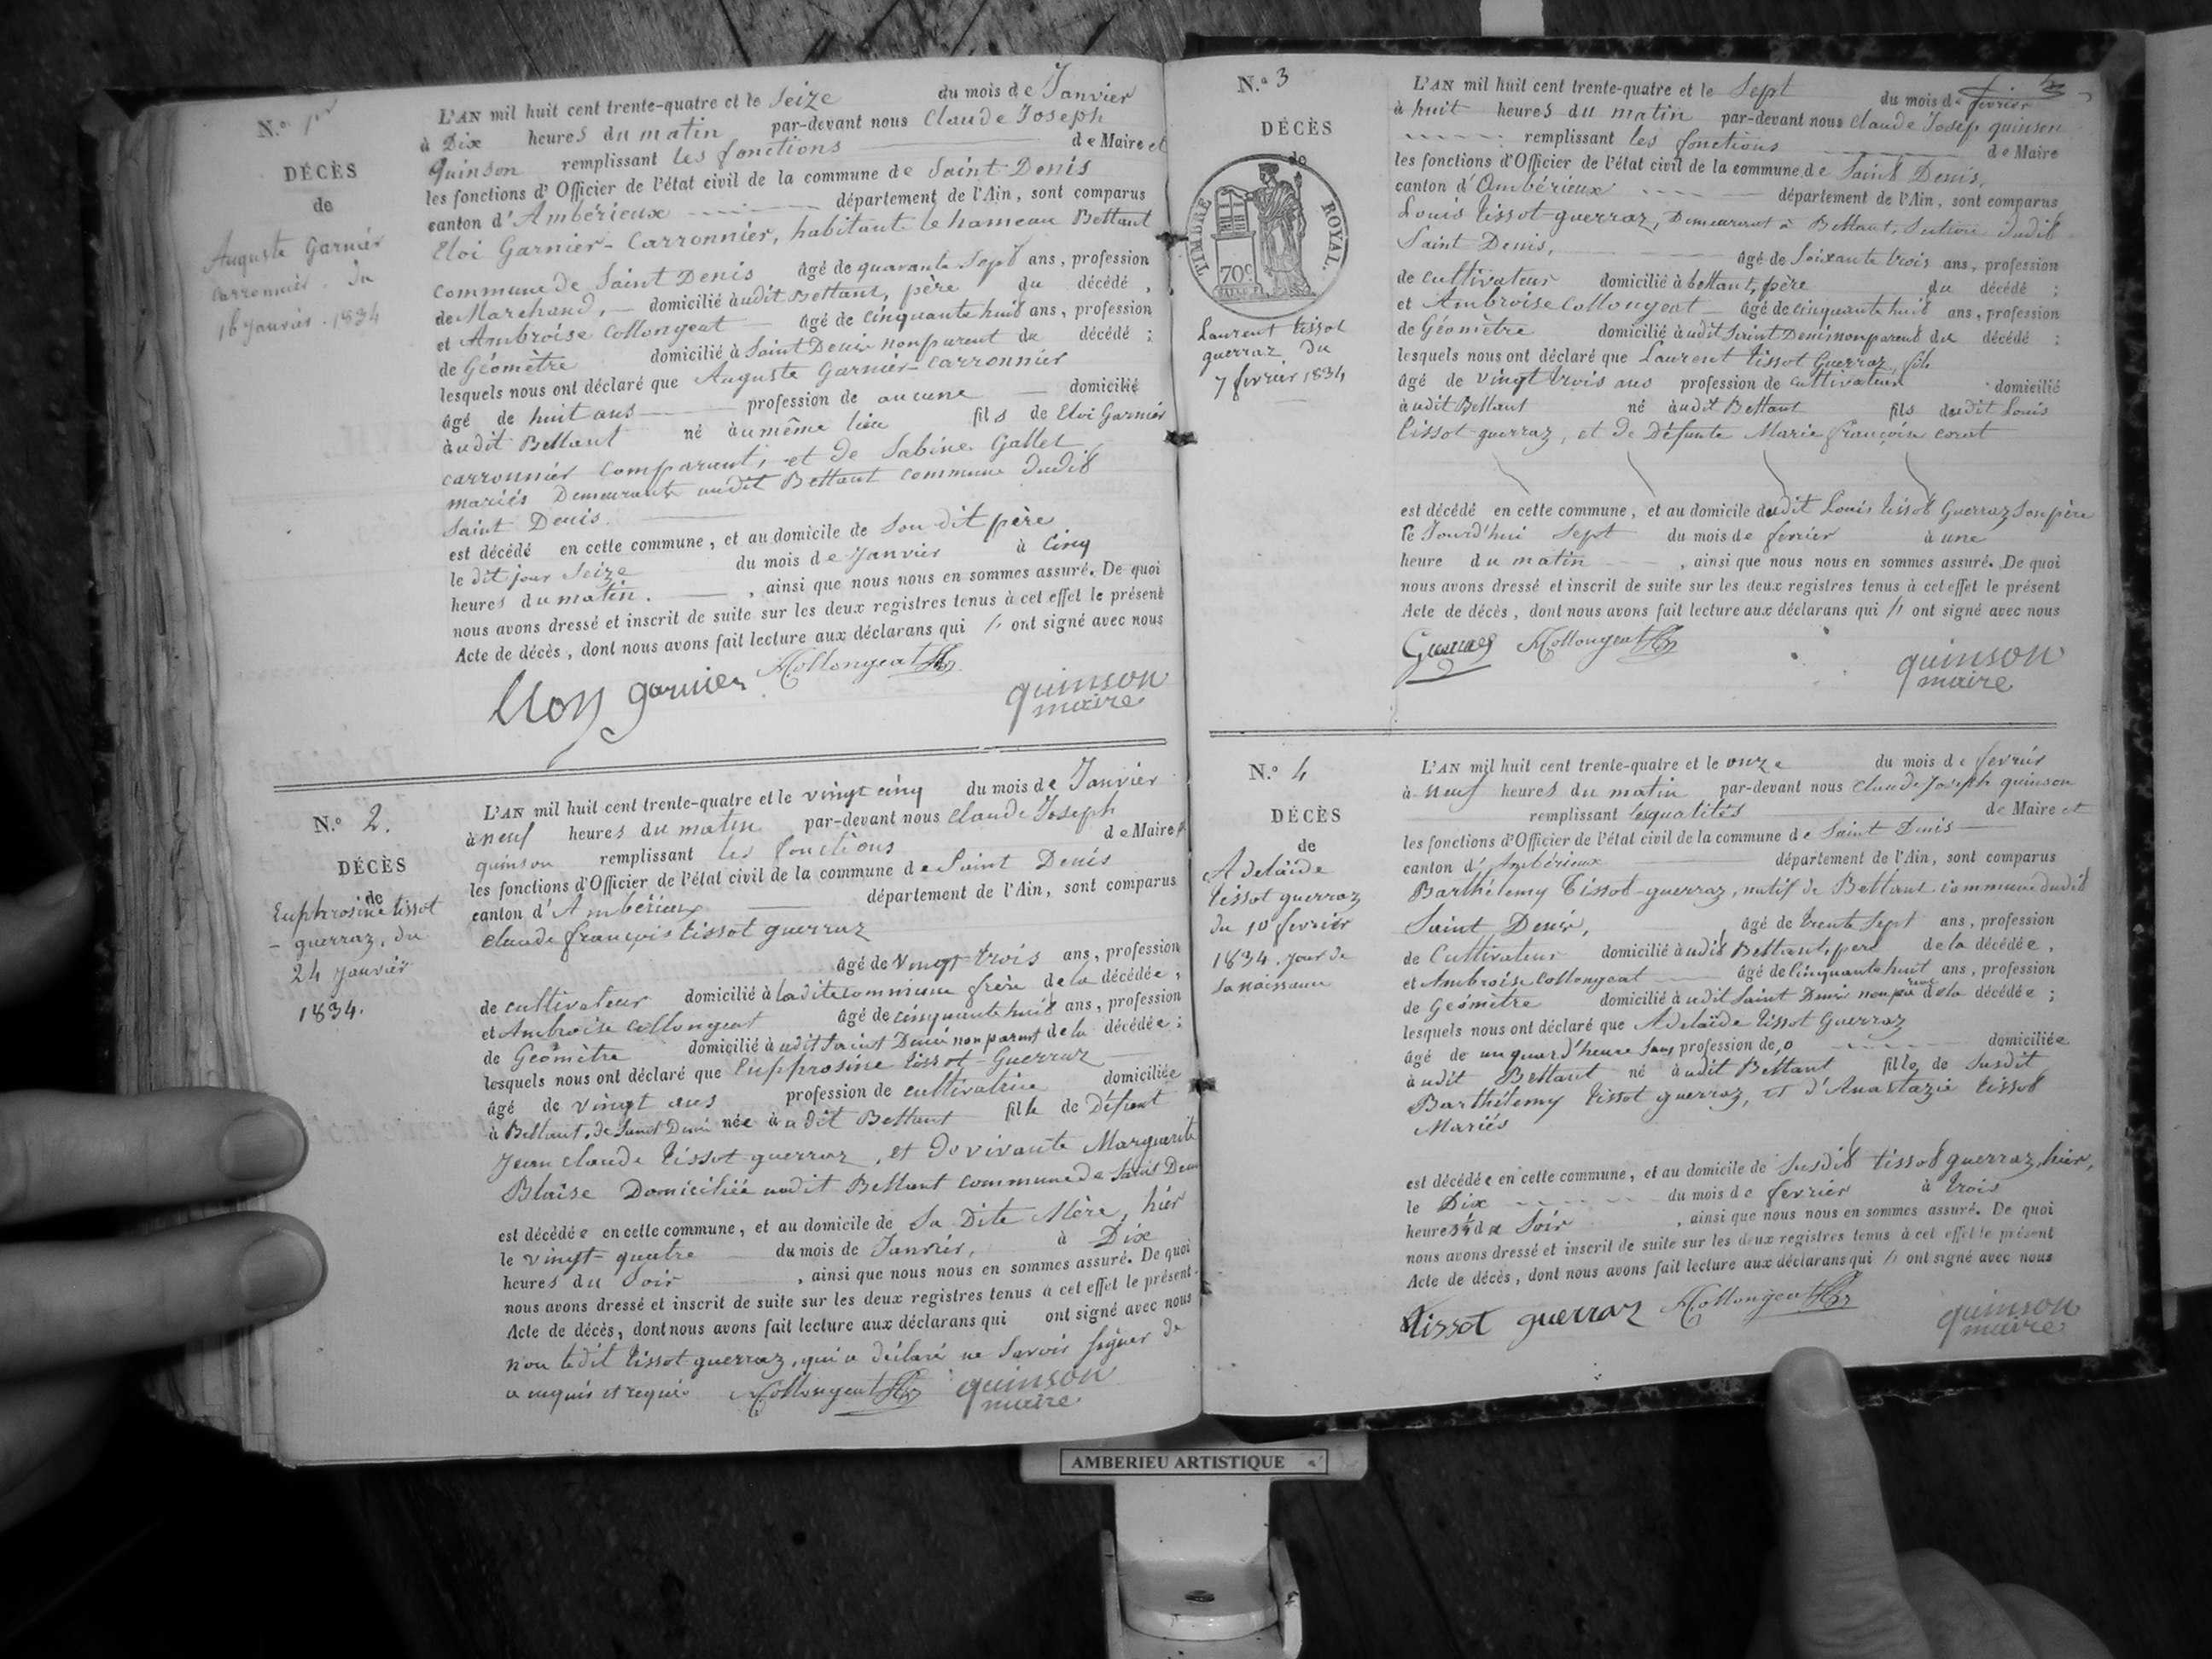 N.º 1er
DÉCÈS
de
Auguste Garnier
Carronnier. du
16 Janvier. 1834
L'AN mil huit cent trente-quatre et le Seize du mois de Janvier
à Dix heures du matin par-devant nous Claude Joseph
Quinson remplissant les fonctions de Maire et
les fonctions d'Officier de l'état civil de la commune de Saint Denis
canton d'Ambérieux département de l'Ain, sont comparus
Eloi Garnier-Carronnier, habitant le hameau Bettant
commune de Saint Denis âgé de quarante Sept ans, profession
de Marchand, domicilié à udit Bettant, père du décédé,
et Ambroise Collongeat âgé de cinquante huit ans, profession
de Géomètre domicilié à Saint Denis non parent du décédé ;
lesquels nous ont déclaré que Auguste Garnier-Carronnier
âgé de huit ans profession de aucune domicilié
à udit Bettant né au même lieu fils de Eloi Garnier
carronnier comparant, et de Sabine Gallet
mariés Demeurants audit Bettant commune dudit
Saint Denis.
est décédé en cette commune, et au domicile de Son dit père
le dit jour Seize du mois de Janvier à Cinq
heures du matin. , ainsi que nous nous en sommes assuré. De quoi
nous avons dressé et inscrit de suite sur les deux registres tenus à cet effet le présent
Acte de décès, dont nous avons fait lecture aux déclarans qui ont signé avec nous
garnier Collongeat quinson
maire
N.º 2.
DÉCÈS
de
Euphrosine tissot
- guerraz, du
24 Janvier
1834.
L'AN mil huit cent trente-quatre et le vingt cinq du mois de Janvier
à neuf heures du matin par-devant nous Claude Joseph
quinson remplissant les fonctions de Maire et
les fonctions d'Officier de l'état civil de la commune de Saint Denis
canton d'Ambérieux département de l'Ain, sont comparus
Claude françois tissot guerraz
âgé de vingt trois ans, profession
de cultivateur domicilié à ladite commune frère de la décédée,
et Ambroise Collongeat âgé de cinquante huit ans, profession
de Géomètre domicilié à udit Saint Denis non parent de la décédée ;
lesquels nous ont déclaré que Eupprosine tissot-Guerraz
âgé de vingt ans profession de cultivatrice domiciliée
à Bettant, de Saint Denis née à udit Bettant fille de Défunt
Jean Claude tissot guerraz, et de vivante Marguerite
Blaise Domiciliée audit Bettant commune de Saint Denis
est décédée en cette commune, et au domicile de Sa Dite Mère, hier
le vingt-quatre du mois de Janvier, à Dix
heures du Soir , ainsi que nous nous en sommes assuré. De quoi
nous avons dressé et inscrit de suite sur les deux registres tenus à cet effet le présent
Acte de décès, dont nous avons fait lecture aux déclarans qui ont signé avec nous
non ledit tissot-guerraz, qui a déclaré ne Savoir Signer de
ce requis et requis Collongeat quinson
maire
N.º 3
DÉCÈS
de
TIMBRE ROYAL.
70c
Laurent tissot
guerraz du
7 fevrier 1834
L'AN mil huit cent trente-quatre et le Sept du mois de fevrier
à huit heures du matin par-devant nous Claude Josep quinson
remplissant les fonctions de Maire
les fonctions d'Officier de l'état civil de la commune de Saint Denis,
canton d'Ambérieux département de l'Ain, sont comparus
Louis tissot-guerraz, Demeurant à Bettant, Section dudit
Saint Denis, âgé de Soixante trois ans, profession
de cultivateur domicilié à bettant, père du décédé ;
et Ambroise Collongeat âgé de cinquante huit ans, profession
de Géomètre domicilié à udit Saint Denis non parent du décédé ;
lesquels nous ont déclaré que Laurent tissot Guerraz, fils
âgé de vingt trois ans profession de cultivateur domicilié
à udit Bettant né à udit Bettant fils dudit Louis
tissot-guerraz, et de Défunte Marie françoise
est décédé en cette commune, et au domicile dudit Louis tissot Guerraz Son père
le Jourd'hui Sept du mois de fevrier à une
heure du matin , ainsi que nous nous en sommes assuré. De quoi
nous avons dressé et inscrit de suite sur les deux registres tenus à cet effet le présent
Acte de décès, dont nous avons fait lecture aux déclarans qui ont signé avec nous
Collongeat quinson
maire
N.º 4
DÉCÈS
de
Adelaïde
tissot guerraz
du 10 fevrier
1834. jour de
sa naissance
L'AN mil huit cent trente-quatre et le onze du mois de fevrier
à neuf heures du matin par-devant nous Claude Joseph quinson
remplissant les qualités de Maire et
les fonctions d'Officier de l'état civil de la commune de Saint Denis
canton d'Ambérieux département de l'Ain, sont comparus
Barthélemy Tissot-guerraz, natif de Bettant commune dudit
Saint Denis, âgé de trente Sept ans, profession
de Cultivateur domicilié à udit Bettant, père de la décédée,
et Ambroise Collongeat âgé de Cinquante huit ans, profession
de Géomètre domicilié à udit Saint Denis non parent de la décédée ;
lesquels nous ont déclaré que Adelaïde tissot Guerraz
âgé de un quart d'heure Sans profession de, o domiciliée
à udit Bettant né à udit Bettant fille de Susdit
Barthélemy tissot guerraz, et d'Anastazie tissot
Mariés
est décédée en cette commune, et au domicile de Susdit tissot guerraz, hier,
le Dix du mois de fevrier à trois
heures du Soir , ainsi que nous nous en sommes assuré. De quoi
nous avons dressé et inscrit de suite sur les deux registres tenus à cet effet le présent
Acte de décès, dont nous avons fait lecture aux déclarans qui ont signé avec nous
tissot guerraz Collongeat quinson
maire
AMBERIEU ARTISTIQUE